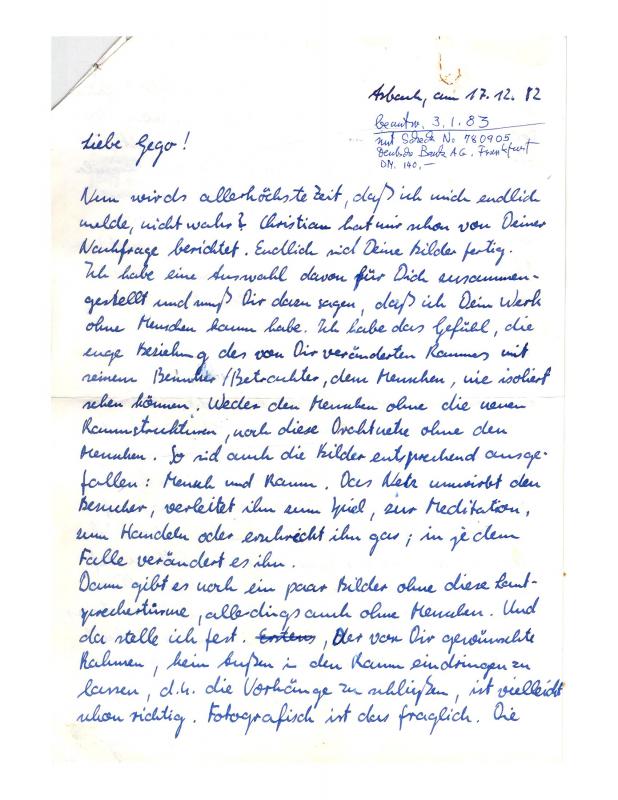 Asbach, am 17.12.82
beantw. 3.1.83
mit Scheck No 780905
Deutsche Bank AG. Frankfurt
DM. 140,—
Liebe Gego!
Nun wirds allerhöchste Zeit, daß ich mich endlich
melde, nicht wahr? Christian hat mir schon von Deiner
Nachfrage berichtet. Endlich sind Deine Bilder fertig.
Ich habe eine Auswahl davon für Dich zusammen-
gestellt und muß Dir dazu sagen, daß ich Dein Werk
ohne Menschen kaum habe. Ich habe das Gefühl, die
enge Beziehung des von Dir veränderten Raumes mit
seinem Benutzer/Betrachter, dem Menschen, nie isoliert
sehen können. Weder den Menschen ohne die neuen
Raumstrukturen, noch diese Drahtnetze ohne den
Menschen. So sind auch die Bilder entsprechend ausge-
fallen: Mensch und Raum. Das Netz umwirbt den
Besucher, verleitet ihn zum Spiel, zur Meditation,
zum Handeln oder erschreckt ihn gar; in jedem
Falle verändert es ihn.
Dann gibt es noch ein paar Bilder ohne diese Laut-
sprechertürme, allerdings auch ohne Menschen. Und
da stelle ich fest. Erstens, Der von Dir gewünschte
Rahmen, kein Außen in den Raum eindringen zu
lassen, d.h. die Vorhänge zu schließen, ist vielleicht
schon richtig. Fotografisch ist das fraglich. Die